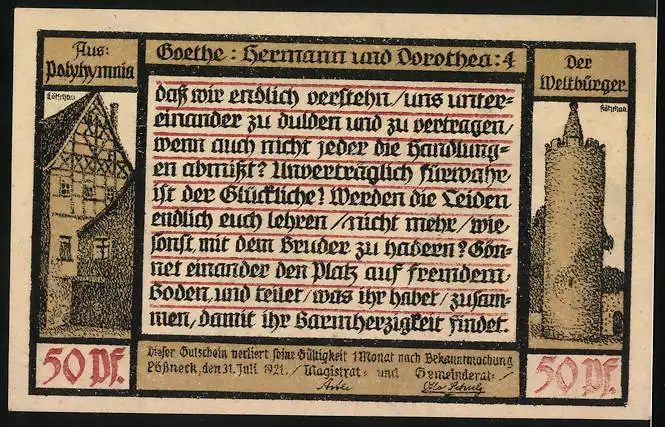 Aus:
Polyhymnia
Goethe: Hermann und Dorothea: 4
Der
Weltbürger
daß wir endlich verstehn/uns unter-
einander zu dulden und zu vertragen/
wenn auch nicht jeder die Handlung-
en abmißt? Unverträglich fürwahr
ist der Glückliche! Werden die Leiden
endlich euch lehren/nicht mehr/wie
sonst mit dem Bruder zu hadern? Gön-
net einander den Platz auf fremdem
Boden, und teilet/was ihr habet/zusam-
men, damit ihr Barmherzigkeit findet.
50 Pf.
Dieser Gutschein verliert seine Gültigkeit 1 Monat nach Bekanntmachung
Pößneck, den 31. Juli 1921. / Magistrat- und Gemeinderat-
50 Pf.